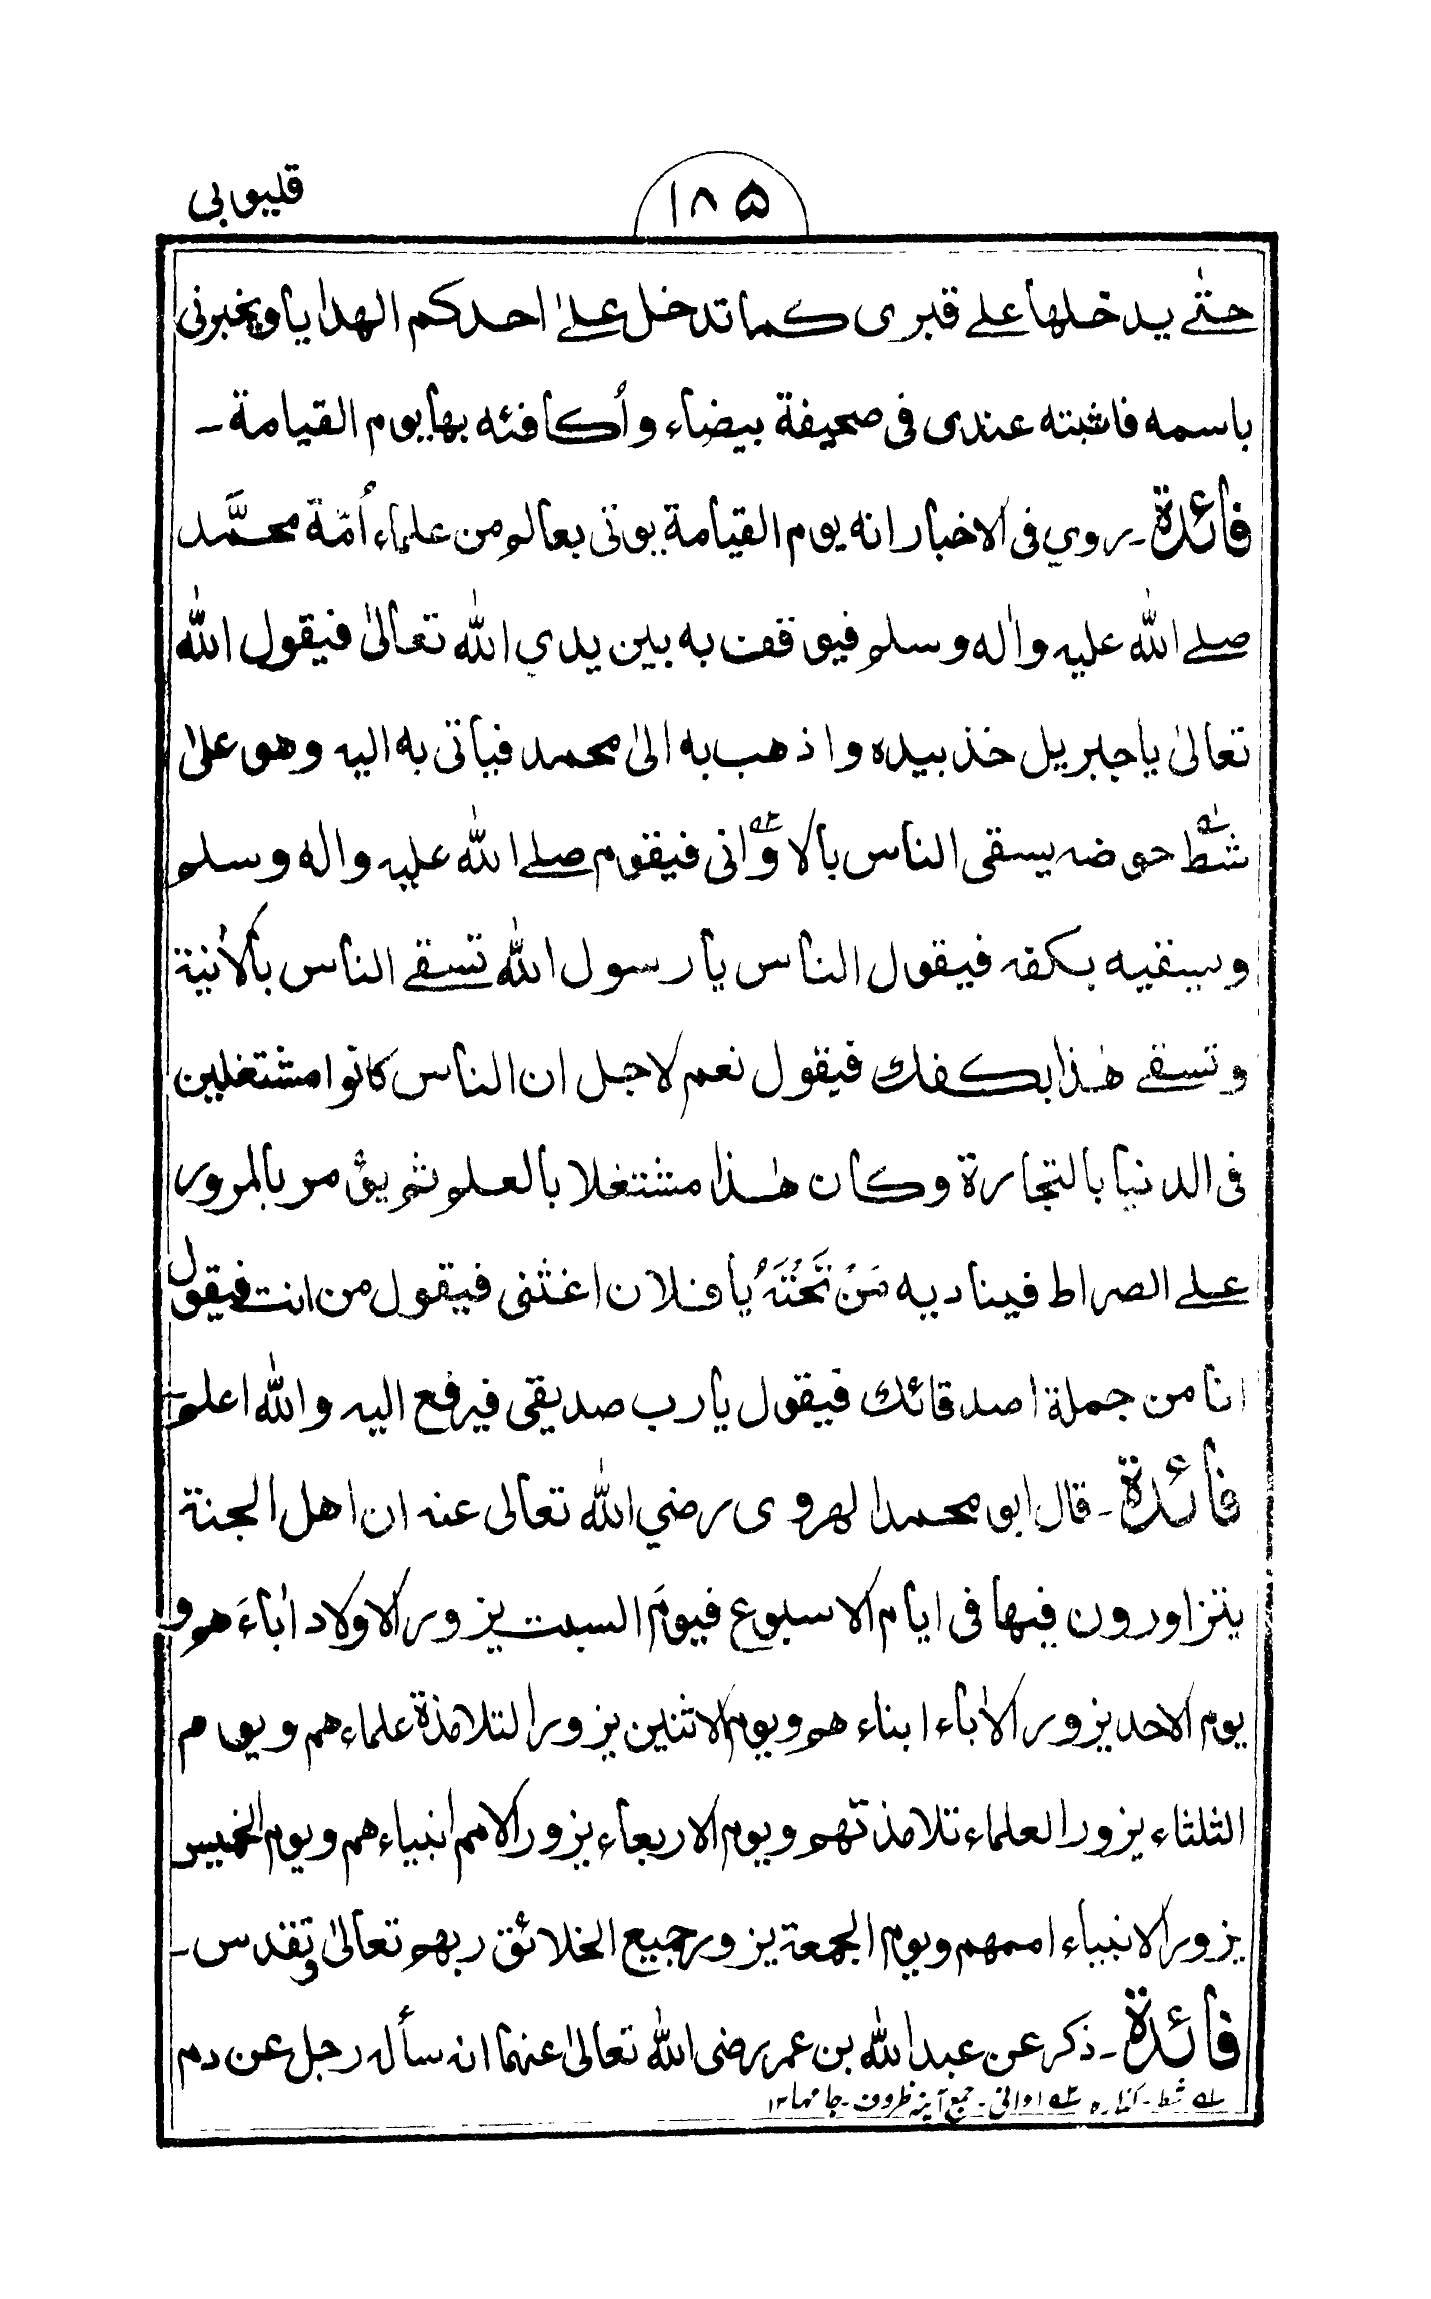 قليوبي
١٨۵
حتٰے يدخلها علے قبرى كما تدخل علےٰ احدكم الهدايا ويخبرنى
باسمه فاثبته عندى فى صحيفة بيضاء وأكافئه بها يوم القيامة ـ
فائدة ـ روي فى الاخبار انه يوم القيامة يوتى بعالم من علماء أمّة محمَّد
صلے الله عليه واٰله وسلم فيوقف به بين يدي الله تعالىٰ فيقول الله
تعالىٰ يا جبريل خذ بيده واذهب به الىٰ محمد فياتى به اليه وهو علىٰ
شطّ حوضه يسقى الناس بالاوانى فيقوم صلے الله عليه واله وسلم
ويسقيه بكفه فيقول الناس يا رسول الله تسقے الناس بالاٰنية
وتسقے هٰذا بكفك فيقول نعم لاجل ان الناس كانوا مشتغلين
فى الدنيا بالتجارة وكان هٰذا مشتغلا بالعلم ثم يؤمر بالمرور
علے الصراط فيناديه مَنْ تَحْتَهُ يا فلان اغثنى فيقول من انت فيقول
انا من جملة اصدقائك فيقول يا رب صديقى فيرفع اليه والله اعلم ـ
فائدة ـ قال ابو محمد الهروى رضي الله تعالى عنه ان اهل الجنة
يتزاورون فيها فى ايام الاسبوع فيومَ السبت يزور الاولاد اٰباءَهم و
يوم الاحد يزور الاٰباء ابناءهم ويوم الاثنين يزور التلامذة علماءهم ويوم
الثلثاء يزور العلماء تلامذتهم ويوم الاربعاء يزور الامم انبياءهم ويوم الخميس
يزور الانبياء اممهم ويوم الجمعة يزور جميع الخلائق ربهم تعالىٰ وتقدس ـ
فائدة ـ ذكر عن عبد الله بن عمر رضى الله تعالىٰ عنهما انه سأله رجل عن دم
لـه شط ـ كناره لـه اوانى ـ جمع آنيه ظروف ـ جامها ۱۲